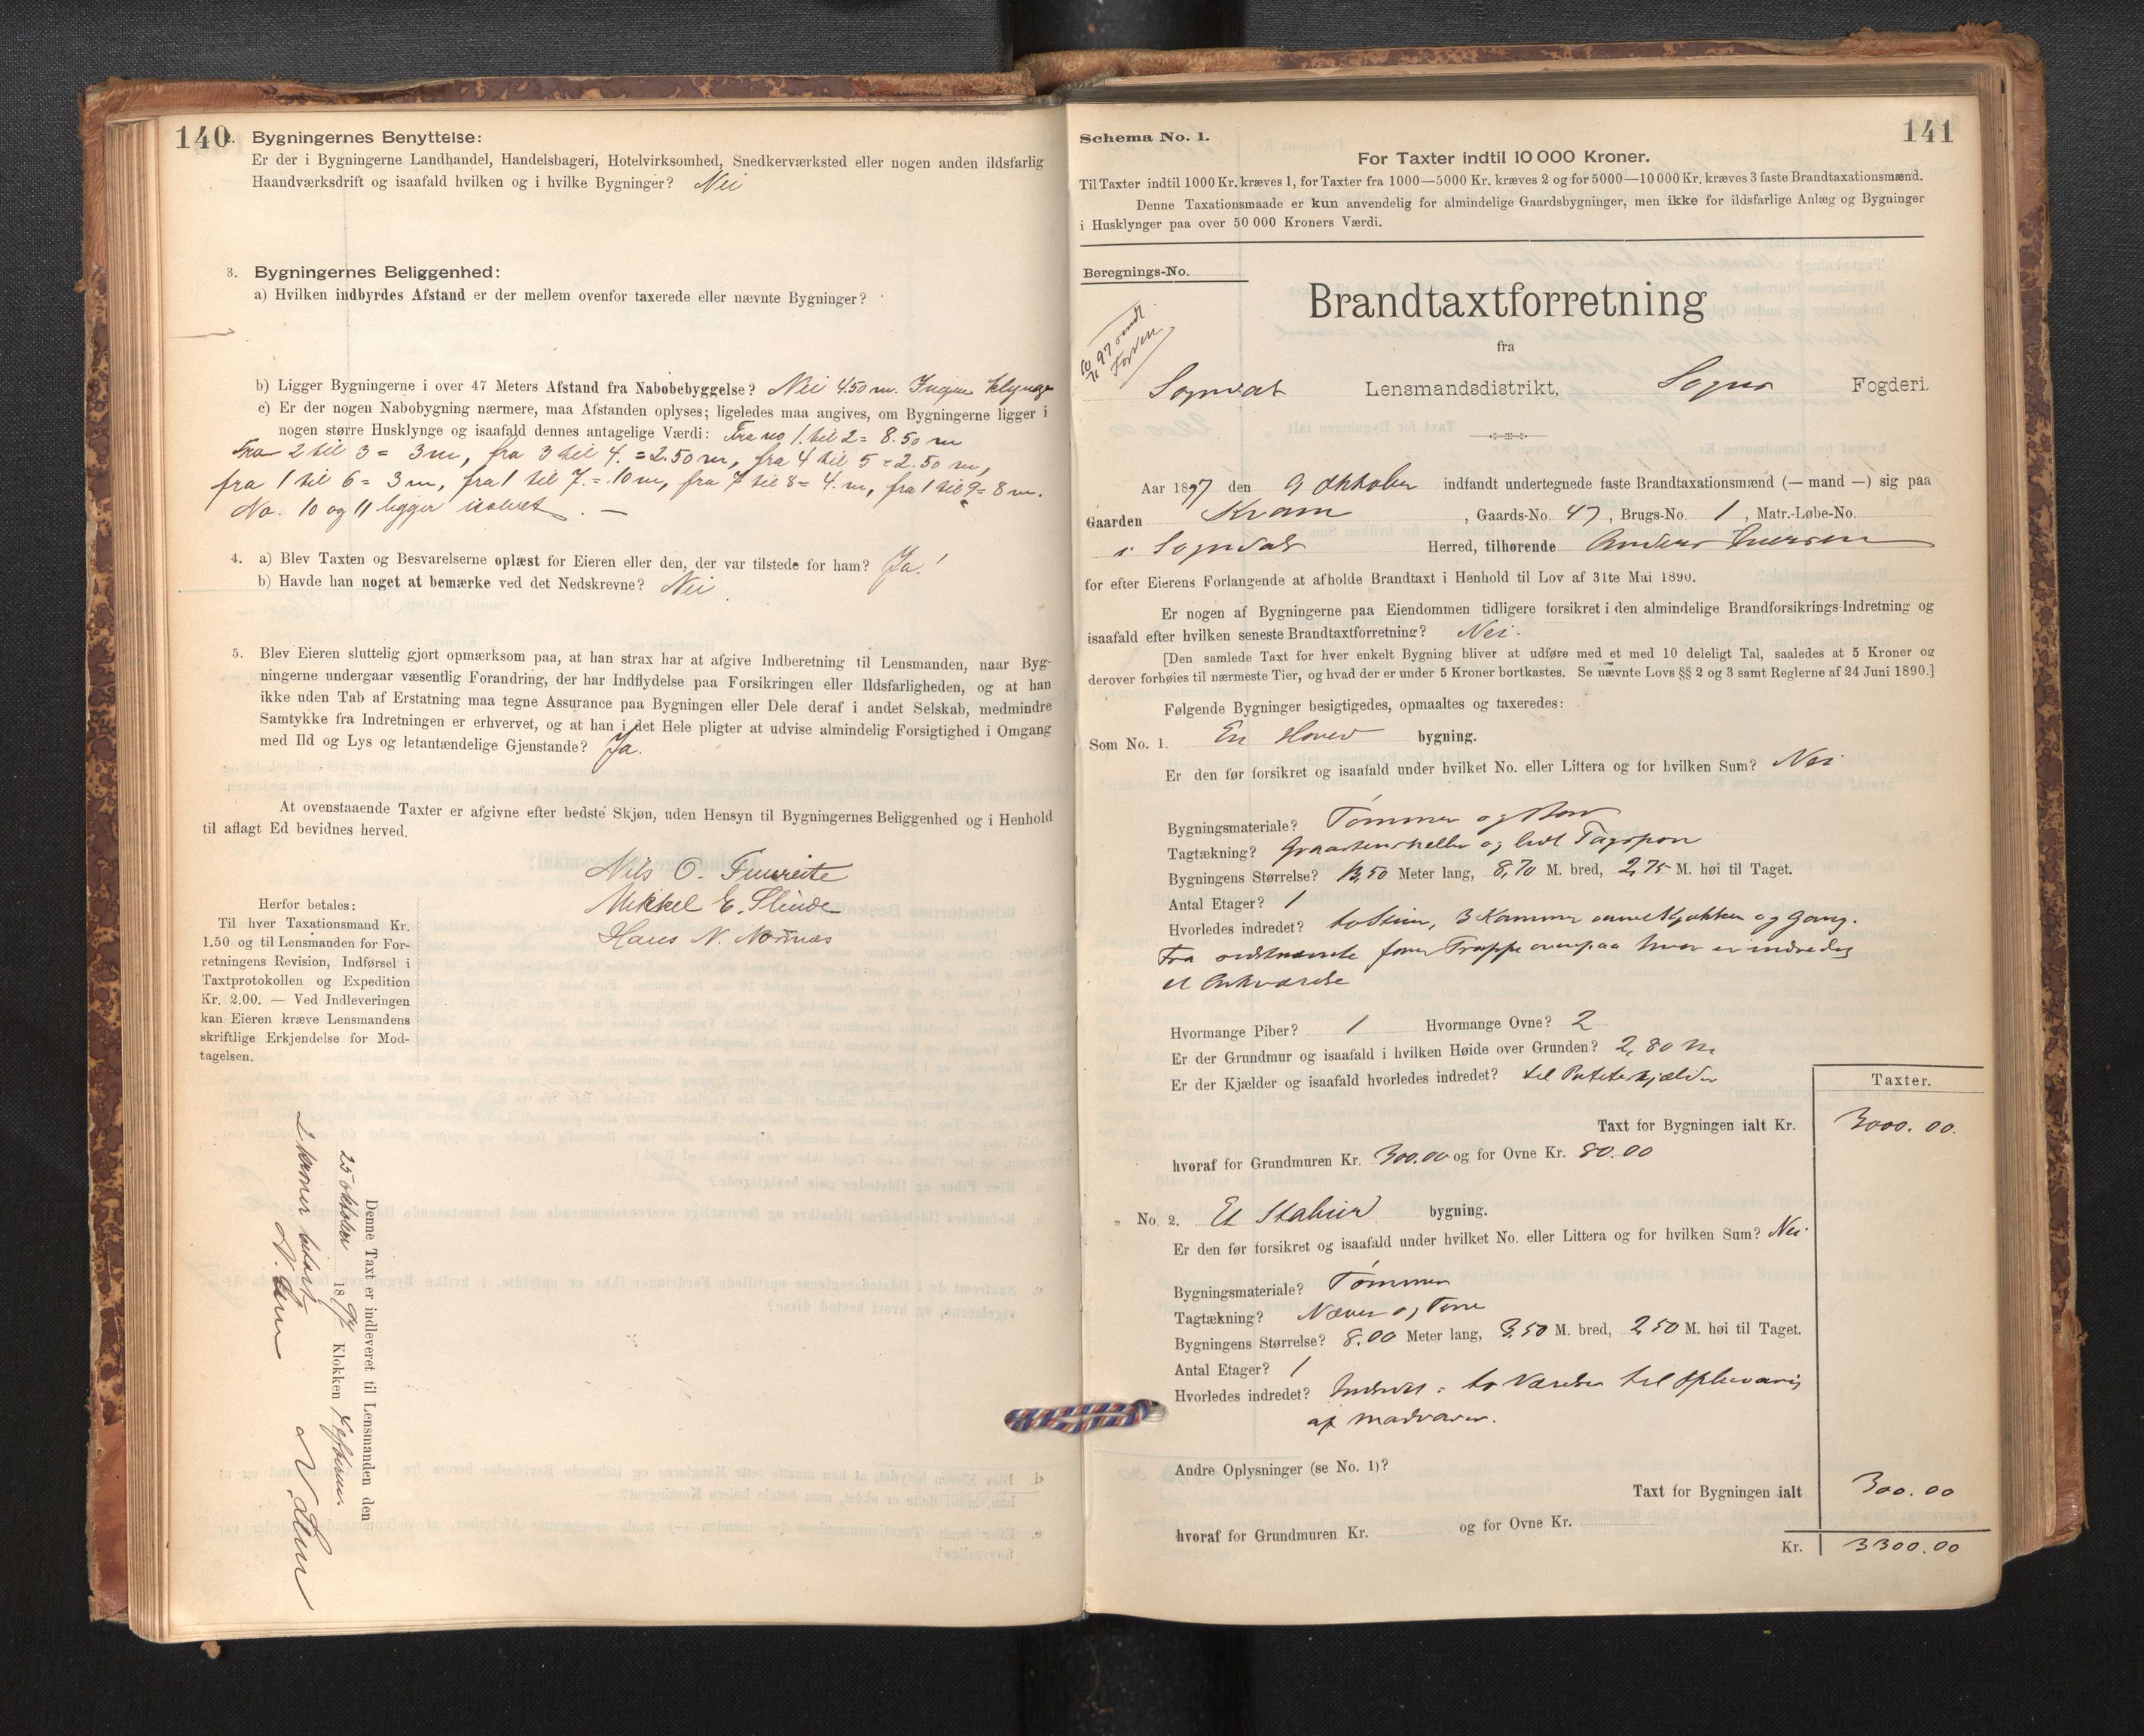 140
2. Bygningernes Benyttelse:
Er der i Bygningerne Landhandel, Handelsbageri, Hotelvirksomhed, Snedkerværksted eller nogen anden ildsfarlig
Haandværksdrift og isaafald hvilken og i hvilke Bygninger? Nei
3. Bygningernes Beliggenhed:
a) Hvilken indbyrdes Afstand er der mellem ovenfor taxerede eller nævnte Bygninger?
b) Ligger Bygningerne i over 47 Meters Afstand fra Nabobebyggelse? Nei 450 m. Ingen klynge
c) Er der nogen Nabobygning nærmere, maa Afstanden oplyses; ligeledes maa angives, om Bygningerne ligger i
nogen større Husklynge og isaafald dennes antagelige Værdi: Fra no 1 til 2 = 8.50 m
Fra 2 til 3 = 3 m, fra 3 til 4. = 2.50 m, fra 4 til 5 = 2.50 m,
fra 1 til 6 = 3 m, fra 1 til 7. = 10 m, fra 7 til 8 = 4. m, fra 1 til 9 = 8 m.
No. 10 og 11 ligger isoleret. —
4. a) Blev Taxten og Besvarelserne oplæst for Eieren eller den, der var tilstede for ham? Ja!
b) Havde han noget at bemærke ved det Nedskrevne? Nei
5. Blev Eieren sluttelig gjort opmærksom paa, at han strax har at afgive Indberetning til Lensmanden, naar Byg-
ningerne undergaar væsentlig Forandring, der har Indflydelse paa Forsikringen eller Ildsfarligheden, og at han
ikke uden Tab af Erstatning maa tegne Assurance paa Bygningen eller Dele deraf i andet Selskab, medmindre
Samtykke fra Indretningen er erhvervet, og at han i det Hele pligter at udvise almindelig Forsigtighed i Omgang
med Ild og Lys og letantændelige Gjenstande? Ja.
At ovenstaaende Taxter er afgivne efter bedste Skjøn, uden Hensyn til Bygningernes Beliggenhed og i Henhold
til aflagt Ed bevidnes herved.
Nils O. Fuureite
Mikkel E. Slinde
Hans N. Nornes
Herfor betales:
Til hver Taxationsmand Kr.
1,50 og til Lensmanden for For-
retningens Revision, Indførsel i
Taxtprotokollen og Expedition
Kr. 2.00. — Ved Indleveringen
kan Eieren kræve Lensmandens
skriftlige Erkjendelse for Mod-
tagelsen.
Denne Taxt er indleveret til Lensmanden den
25 oktober 1897 Klokken Efterm.
2 kroner betalt
141
Schema No. 1.
For Taxter indtil 10 000 Kroner.
Til Taxter indtil 1000 Kr. kræves 1, for Taxter fra 1000—5000 Kr. kræves 2 og for 5000—10 000 Kr. kræves 3 faste Brandtaxationsmænd.
Denne Taxationsmaade er kun anvendelig for almindelige Gaardsbygninger, men ikke for ildsfarlige Anlæg og Bygninger
i Husklynger paa over 50 000 Kroners Værdi.
Beregnings-No.
Brandtaxtforretning
fra
Sogndal Lensmandsdistrikt, Sogns Fogderi.
Aar 1897 den 9 Oktober indfandt undertegnede faste Brandtaxationsmænd (— mand —) sig paa
Gaarden Kvam, Gaards-No. 47, Brugs-No. 1, Matr.-Løbe-No.
i Sogndals Herred, tilhørende Anders Iversen
for efter Eierens Forlangende at afholde Brandtaxt i Henhold til Lov af 31te Mai 1890.
Er nogen af Bygningerne paa Eiendommen tidligere forsikret i den almindelige Brandforsikrings-Indretning og
isaafald efter hvilken seneste Brandtaxtforretning? Nei.
[Den samlede Taxt for hver enkelt Bygning bliver at udføre med et med 10 deleligt Tal, saaledes at 5 Kroner og
derover forhøies til nærmeste Tier, og hvad der er under 5 Kroner bortkastes. Se nævnte Lovs §§ 2 og 3 samt Reglerne af 24 Juni 1890.]
Følgende Bygninger besigtigedes, opmaaltes og taxeredes:
Som No. 1. En Hoved bygning.
Er den før forsikret og isaafald under hvilket No. eller Littera og for hvilken Sum? Nei
Bygningsmateriale? Tømmer og Bord
Tagtækning? Graastensheller og lidt Tagspon
Bygningens Størrelse? 13,50 Meter lang, 8,70 M. bred, 2,75 M. høi til Taget.
Antal Etager? 1
Hvorledes indredet? to Stuer, 3 Kammer samt Kjøkken og Gang.
Fra sidstnævnte fører Trappe ovenpaa hvor er indredes
et Arkværelse
Hvormange Piber? 1 Hvormange Ovne? 2
Er der Grundmur og isaafald i hvilken Høide over Grunden? 2,80 m
Er der Kjælder og isaafald hvorledes indredet? til Poteteskjælder
Taxter.
Taxt for Bygningen ialt Kr. 3000.00.
hvoraf for Grundmuren Kr. 300.00 og for Ovne Kr. 80.00
„ No. 2. Et Stabur bygning.
Er den før forsikret og isaafald under hvilket No. eller Littera og for hvilken Sum? Nei
Bygningsmateriale? Tømmer
Tagtækning? Næver og Torv
Bygningens Størrelse? 8.00 Meter lang, 3.50 M. bred, 2,50 M. høi til Taget.
Antal Etager? 1
Hvorledes indredet? Indredet: to Værelser til Opbevaring
af Madvarer.
Andre Oplysninger (se No. 1)?
Taxt for Bygningen ialt 300.00
hvoraf for Grundmuren Kr. og for Ovne Kr.
Kr. 3300.00